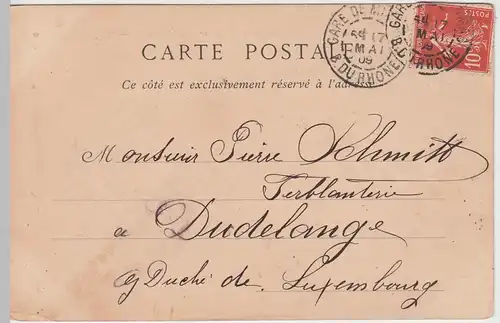 CARTE POSTA
Ce côté est exclusivement réservé à l'ad
GARE DE
5E 17
MAI
09
B. DU RHONE
GARE
MAI
09
B. DU RHONE
POSTES
10
Monsieur Pierre Schmitt
Ferblanterie
a Dudelange
Duché de Luxembourg